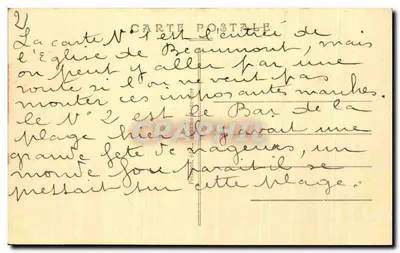 2)
CARTE POSTALE
La carte N° 1 est l'entrée de
l'Eglise de Beaumont, mais
on peut y aller par une
route si l'on ne veut pas
monter ces imposantes marches.
le N° 2 est le Bar de la
plage hier il y avait une
grande fete de nageurs, un
monde fou parait il se
pressait sur cette plage.